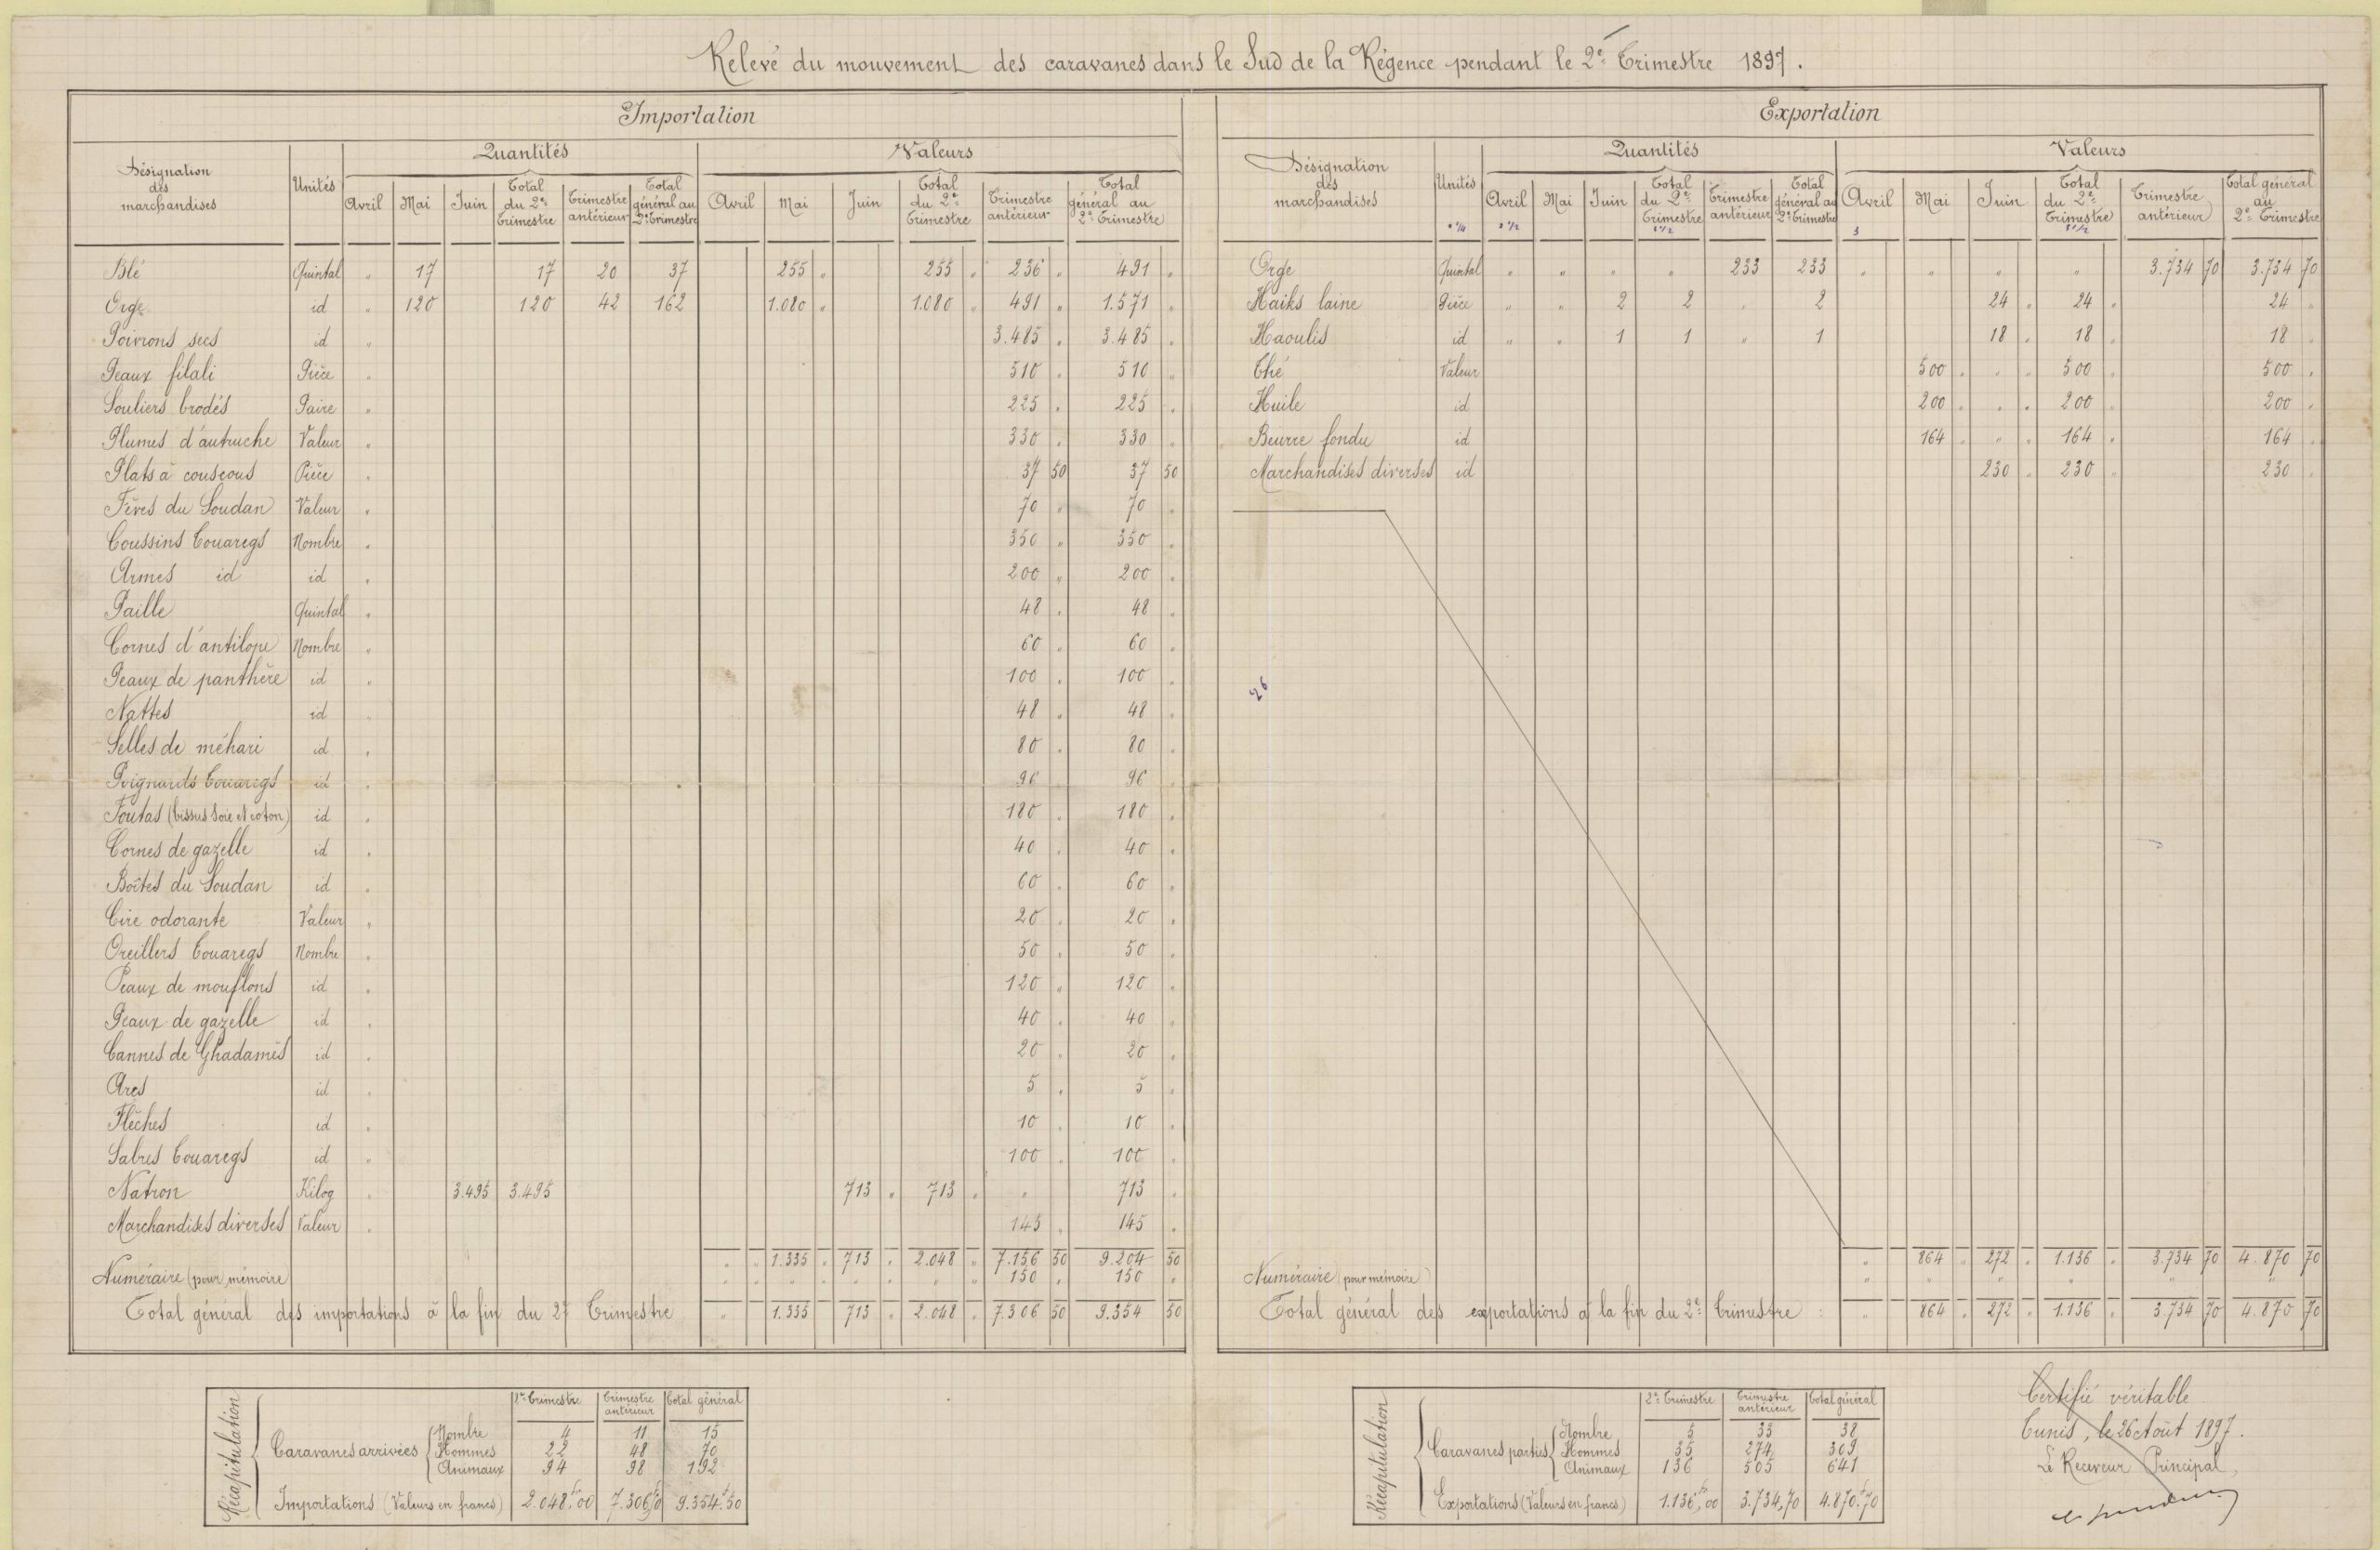 Relevé du mouvement des caravanes dans le Sud de la Régence pendant le 2e Trimestre 1897.
Importation
Désignation des marchandises | Unités | Quantités | Valeurs
Avril | Mai | Juin | Total du 2e Trimestre | Trimestre antérieur | Total général au 2e Trimestre | Avril | Mai | Juin | Total du 2e Trimestre | Trimestre antérieur | Total général au 2e Trimestre
Blé Quintal " 17 17 20 37 255 " 255 " 236 " 491 "
Orge id " 120 120 42 162 1.080 " 1.080 " 491 " 1.571 "
Poivrons secs id " 3.485 " 3.485 "
Peaux filali Pièce " 510 " 510 "
Souliers brodés Paire " 225 " 225 "
Plumes d'autruche Valeur " 330 " 330 "
Plats à couscous Pièce " 37 50 37 50
Fèves du Soudan Valeur " 70 " 70 "
Coussins Touaregs Nombre " 350 " 350 "
Armes id id " 200 " 200 "
Paille Quintal " 48 " 48 "
Cornes d'antilope Nombre " 60 " 60 "
Peaux de panthère id " 100 " 100 "
Nattes id " 48 " 48 "
Selles de méhari id " 80 " 80 "
Poignards Touaregs id " 96 " 96 "
Foutas (tissus soie et coton) id " 180 " 180 "
Cornes de gazelle id " 40 " 40 "
Boîtes du Soudan id " 60 " 60 "
Cire odorante Valeur " 20 " 20 "
Oreillers Touaregs Nombre " 50 " 50 "
Peaux de mouflons id " 120 " 120 "
Peaux de gazelle id " 40 " 40 "
Cannes de Ghadamès id " 20 " 20 "
Arcs id " 5 " 5 "
Flèches id " 10 " 10 "
Sabres Touaregs id " 100 " 100 "
Natron Kilog " 3.495 3.495 713 " 713 " " 713 "
Marchandises diverses Valeur " 145 " 145 "
" " 1.335 " 713 " 2.048 " 7.156 50 9.204 50
Numéraire (pour mémoire) " " " " " " " " 150 " 150 "
Total général des importations à la fin du 2e Trimestre " 1.335 713 " 2.048 " 7.306 50 9.354 50
Récapitulation
2e Trimestre | Trimestre antérieur | Total général
Caravanes arrivées
Nombre 4 11 15
Hommes 22 48 70
Animaux 94 98 192
Importations (Valeurs en francs) 2.048fr,00 7.306f,50 9.354f,50
Exportation
Désignation des marchandises | Unités | Quantités | Valeurs
Avril | Mai | Juin | Total du 2e Trimestre | Trimestre antérieur | Total général au 2e Trimestre | Avril | Mai | Juin | Total du 2e Trimestre | Trimestre antérieur | Total général au 2e Trimestre
Orge Quintal " " " " 233 233 " " " " 3.734 70 3.734 70
Haiks laine Pièce " " 2 2 " 2 24 " 24 " 24 "
Haoulis id " " 1 1 " 1 18 " 18 " 18 "
Thé Valeur 500 " " " 500 " 500 "
Huile id 200 " " " 200 " 200 "
Beurre fondu id 164 " " " 164 " 164 "
Marchandises diverses id 230 " 230 " 230 "
26
" 864 " 272 " 1.136 " 3.734 70 4.870 70
Numéraire (pour mémoire) " " " " " "
Total général des exportations à la fin du 2e Trimestre : " 864 " 272 " 1.136 " 3.734 70 4.870 70
Récapitulation
2e Trimestre | Trimestre antérieur | Total général
Caravanes parties
Nombre 5 33 38
Hommes 35 274 309
Animaux 136 505 641
Exportations (Valeurs en francs) 1.136fr,00 3.734,70 4.870fr,70
Certifié véritable
Tunis, le 26 Août 1897.
Le Receveur Principal,